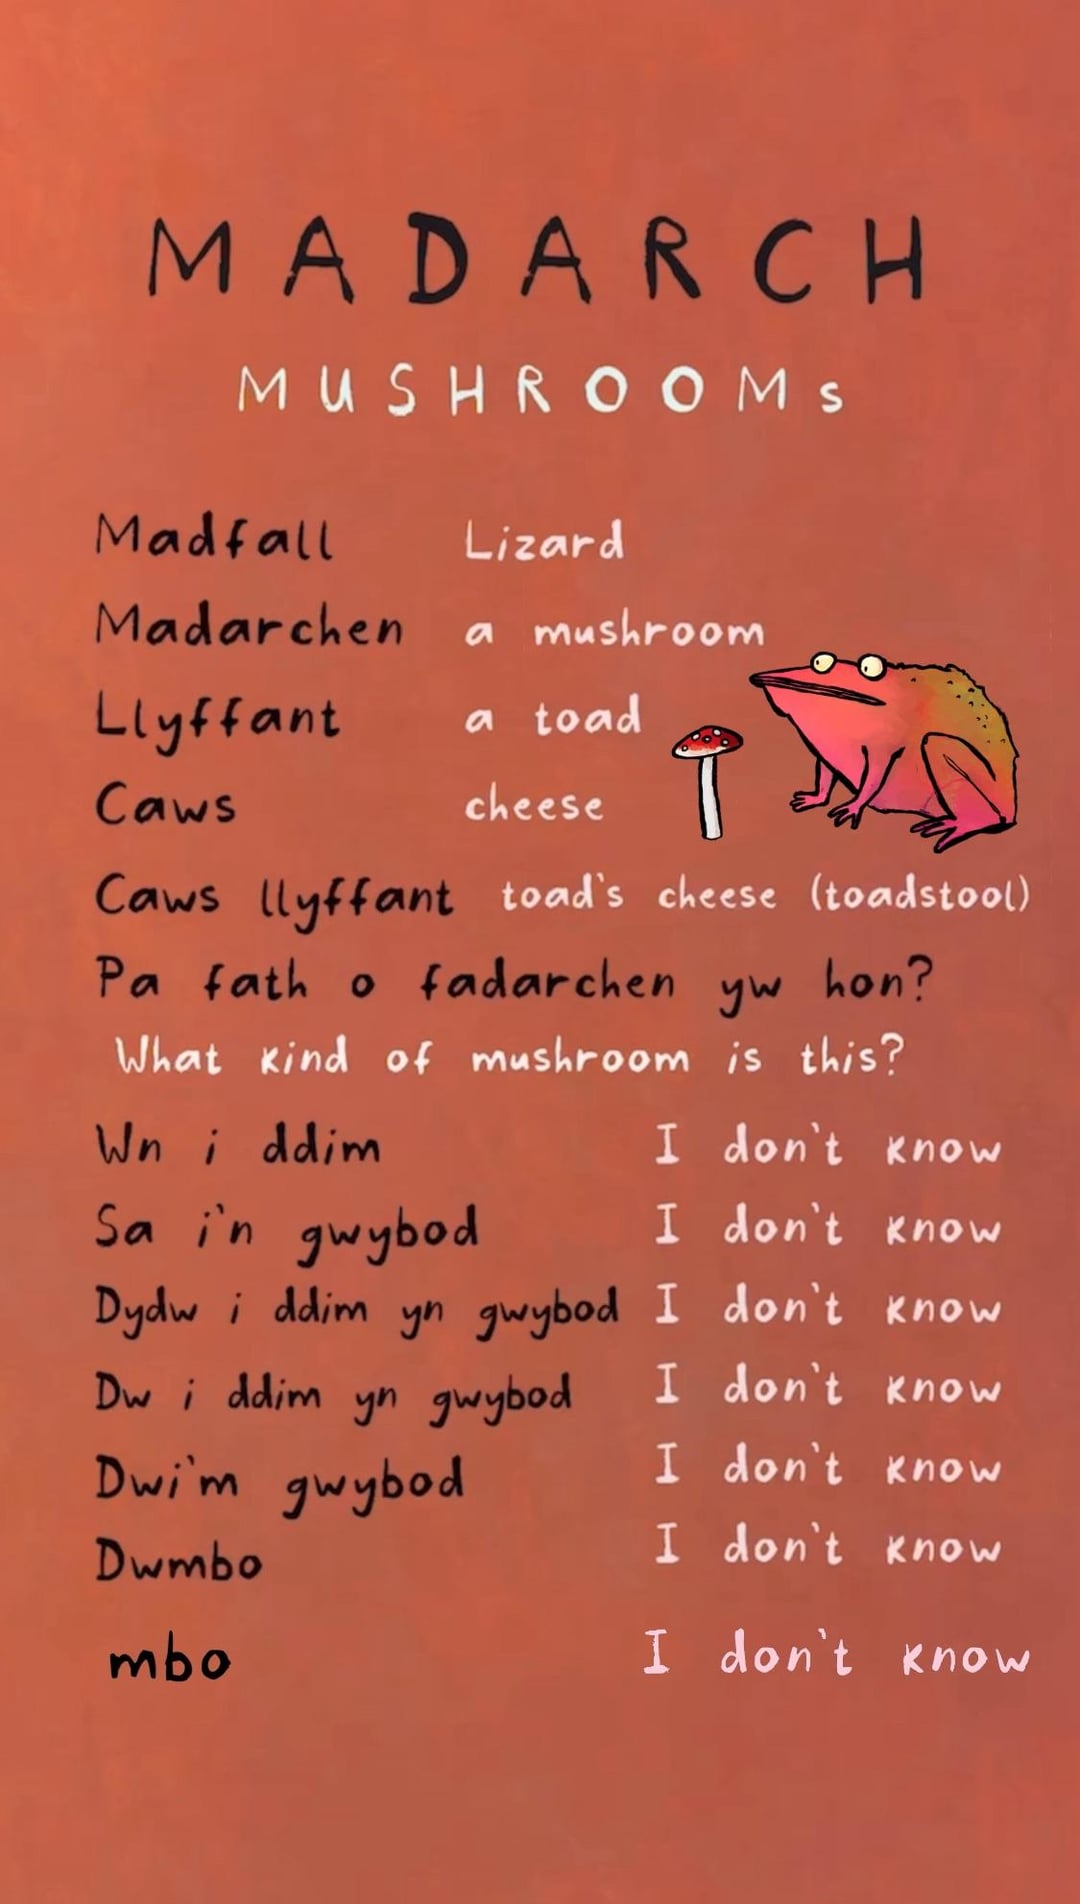 MADARCH
MUSHROOMs
Madfall Lizard
Madarchen a mushroom
Llyffant a toad
Caws cheese
Caws llyffant toad's cheese (toadstool)
Pa fath o fadarchen yw hon?
What kind of mushroom is this?
Wn i ddim I don't know
Sa i'n gwybod I don't know
Dydw i ddim yn gwybod I don't know
Dw i ddim yn gwybod I don't know
Dwi'm gwybod I don't know
Dwmbo I don't know
mbo I don't know